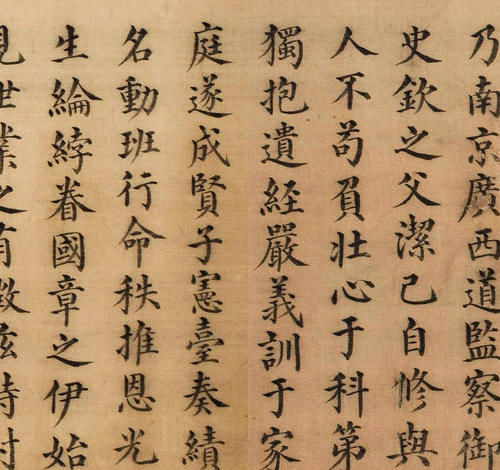 乃南京廣西道監察御
史欽之父潔己自修與
人不苟負壯心于科第
獨抱遺經嚴義訓于家
庭遂成賢子憲臺奏績
名動班行命秩推恩光
生綸綍眷國章之伊始
見世業之有徵茲特封